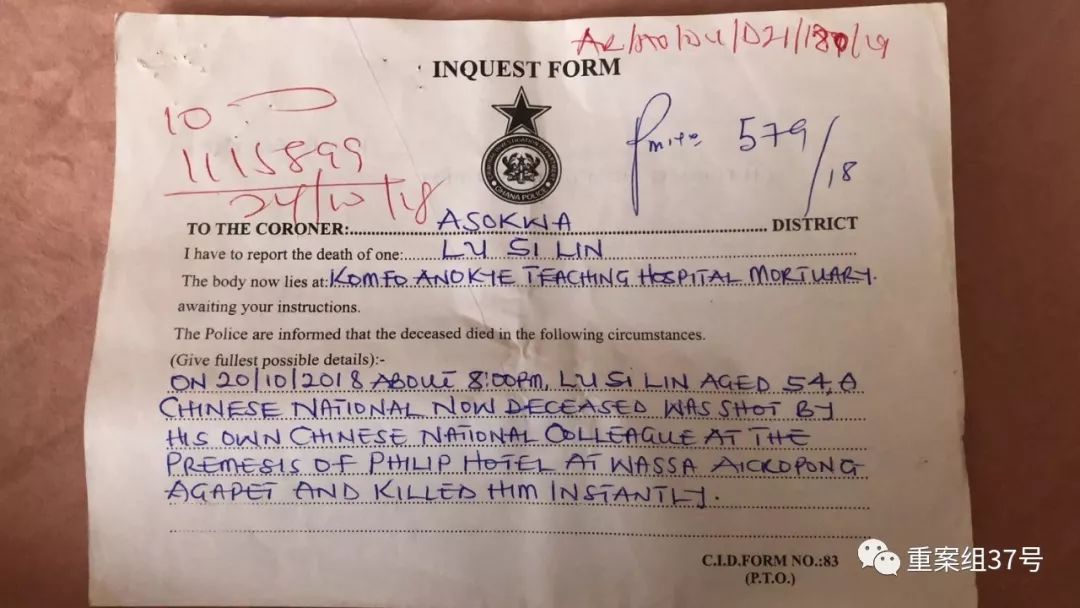 INQUEST FORM
10
1115899
24/10/18
579/18
GHANA POLICE
TO THE CORONER:ASOKWA DISTRICT
I have to report the death of one:LU SI LIN
The body now lies at:KOMFO ANOKYE TEACHING HOSPITAL MORTUARY.
awaiting your instructions.
The Police are informed that the deceased died in the following circumstances.
(Give fullest possible details):-
ON 20/10/2018 ABOUT 8:00PM, LU SI LIN AGED 54, A
CHINESE NATIONAL NOW DECEASED WAS SHOT BY
HIS OWN CHINESE NATIONAL COLLEAGUE AT THE
PREMESIS OF PHILIP HOTEL AT WASSA
AGAPET AND KILLED HIM INSTANTLY.
C.I.D.FORM NO.:83
(P.T.O.)
重案组37号